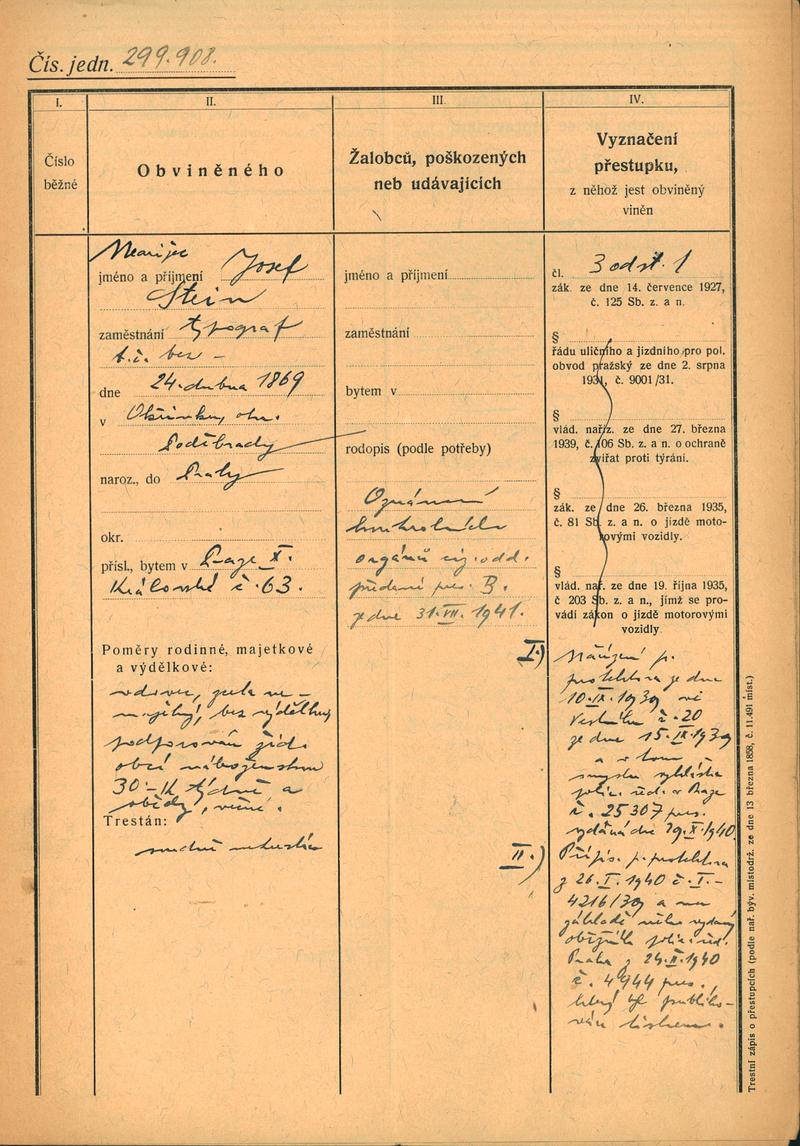 Čís. jedn. 299.908.
I.
Číslo
běžné
II.
Obviněného
III.
Žalobců, poškozených
neb udávajících
IV.
Vyznačení
přestupku,
z něhož jest obviněný
vinén
jméno a příjmení Josef
Stein
zaměstnání typograf
t.č. bez -
dne 24. dubna 1869
v
Poděbrady
naroz., do Prahy
okr.
přísl., bytem v Praze X.
Královská č. 63.
Poměry rodinné, majetkové
a výdělkové:
vdovec,
bez výdělku,
podporován žid.
obcí náboženskou
30 - K týdně a
obědy,
Trestán:
jméno a příjmení
zaměstnání
bytem v
rodopis (podle potřeby)
Oznámení
orgánů
pres. B.
ze dne 31. VII. 1941.
čl. 3 odst. 1
zák. ze dne 14. července 1927,
č. 125 Sb. z. a n.
§
řádu uličního a jízdního pro pol.
obvod pražský ze dne 2. srpna
1931, č. 9001/31.
§
vlád. nařiz. ze dne 27. března
1939, č. 106 Sb. z. a n. o ochraně
zvířat proti týrání.
§
zák. ze dne 26. března 1935,
č. 81 Sb. z. a n. o jízdě moto-
rovými vozidly.
§
vlád. nař. ze dne 19. října 1935,
č 203 Sb. z. a n., jímž se pro-
vádí zákon o jízdě motorovými
vozidly.
I.) Nařízení p.
protektora ze dne
10. IX. 1939 ve
Věstníku č. 20
ze dne 15. IX. 1939
a v tom
smyslu vyhláška
polic. řed. v Praze
č. 25307 pres.
vydaná dne 29. X. 1940.
II.) Přípis p. protektora
z 26. I. 1940 č. I. -
4216/39 a na
základě něho vydaný
oběžník polic. řed.
Praha z 24. II. 1940
č. 4944 pres.,
který byl publiko-
ván tiskem.
Trestní zápis o přestupcích (podle nař. býv. místodrž. ze dne 13 března 1858, č. 11.491 míst.)